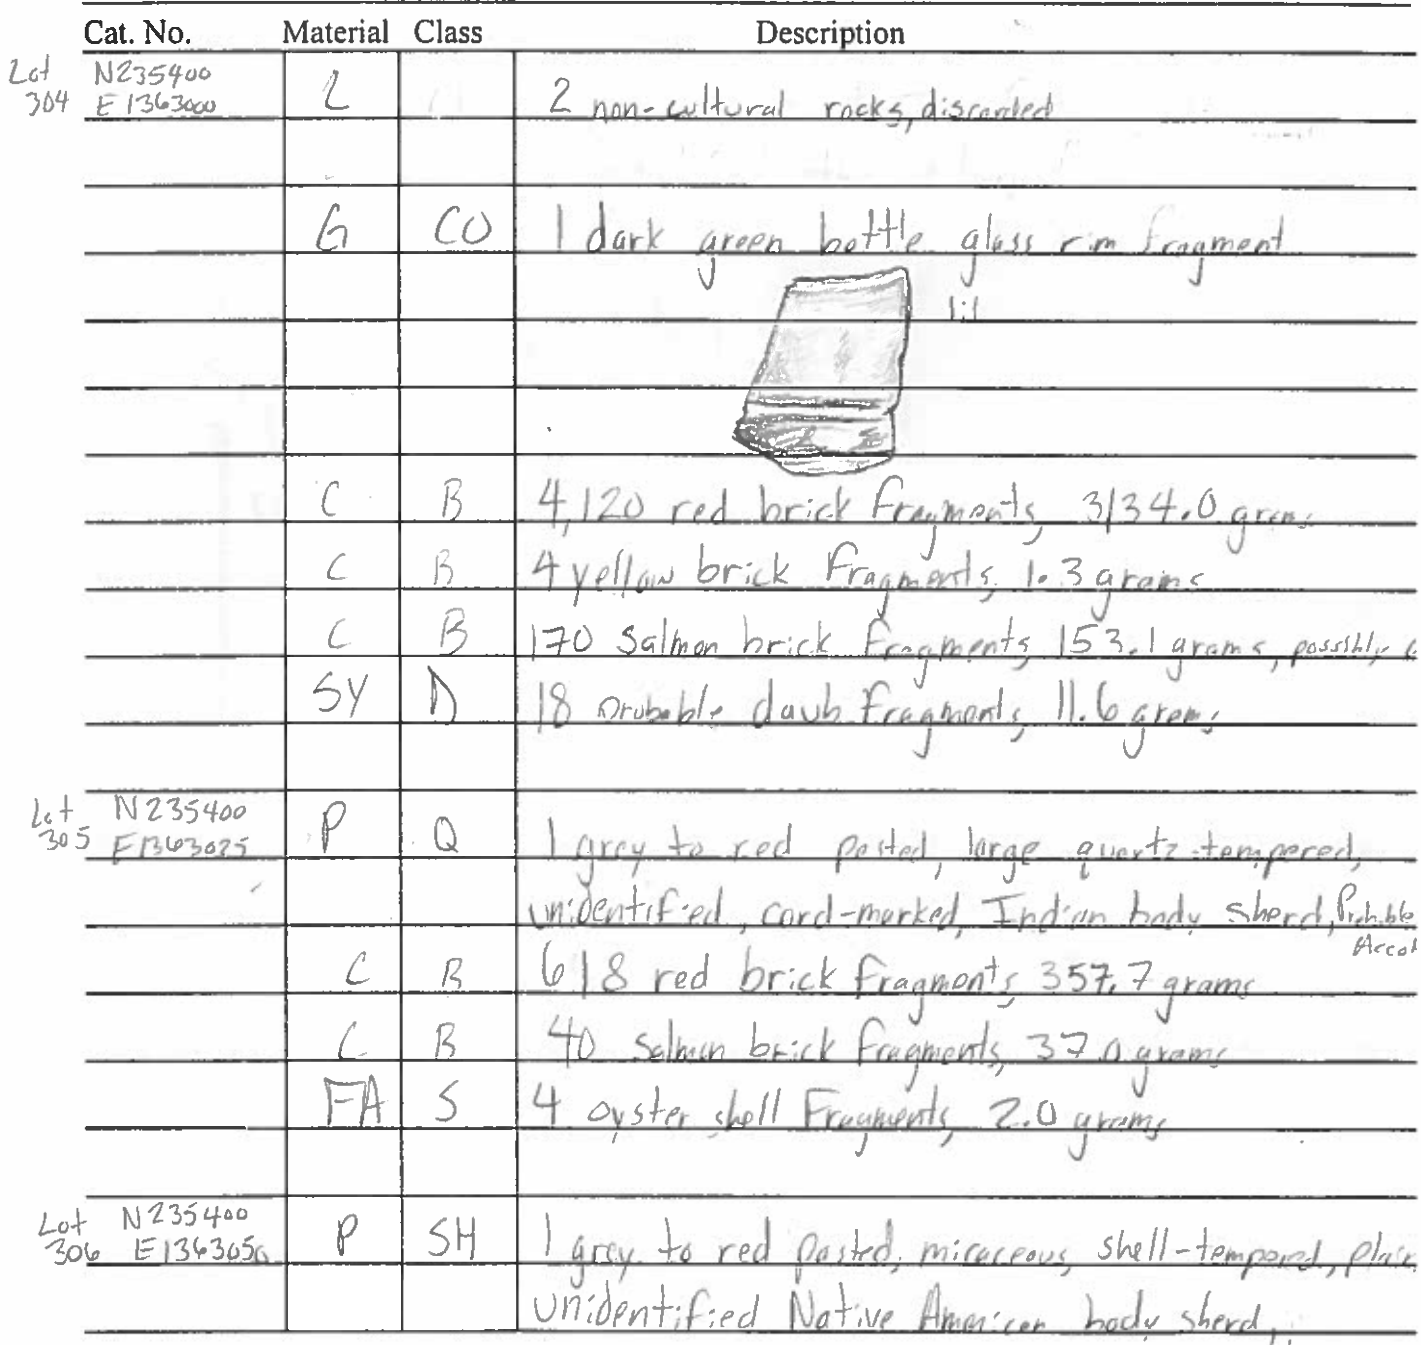 Cat. No. Material Class Description
Lot N235400 L 2 non-cultural rocks, discarded
304 E1363000
G CO 1 dark green bottle glass rim fragment
1:1
C B 4,120 red brick fragments, 3134.0 grams
C B 4 yellow brick fragments, 1.3 grams
C B 170 Salmon brick fragments, 153.1 grams, possibly
SY D 18 probable daub fragments, 11.6 grams
Lot N235400 P Q 1 grey to red pasted, large quartz-tempered,
305 E1363025
unidentified, cord-marked, Indian body sherd, Probable
Accok
C B 618 red brick fragments, 357.7 grams
C B 40 Salmon brick fragments, 37.0 grams
FA S 4 oyster shell fragments, 2.0 grams
Lot N235400 P SH 1 grey to red pasted, micaceous, shell-tempered, plain
306 E1363050
unidentified Native American body sherd,